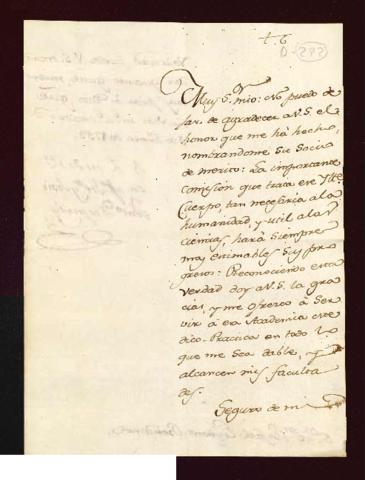 D-292
Muy S.r mio: No puedo de
jar de agradecer a V.S. el
honor que me há hecho,
nombrandome su Socio
de merito: La importante
comision que trata ese Yll.e
Cuerpo, tan necesaria a la
humanidad, y util a las
ciencias, hará siempre
mas estimables sus pro
gresos: Reconociendo esta
verdad doy a V.S. las gra
cias, y me ofrezco à Ser
vir à esa Academia
dico-Practica en todo lo
que me sea dable, y
alcancen mis faculta
des.
Seguro de mi